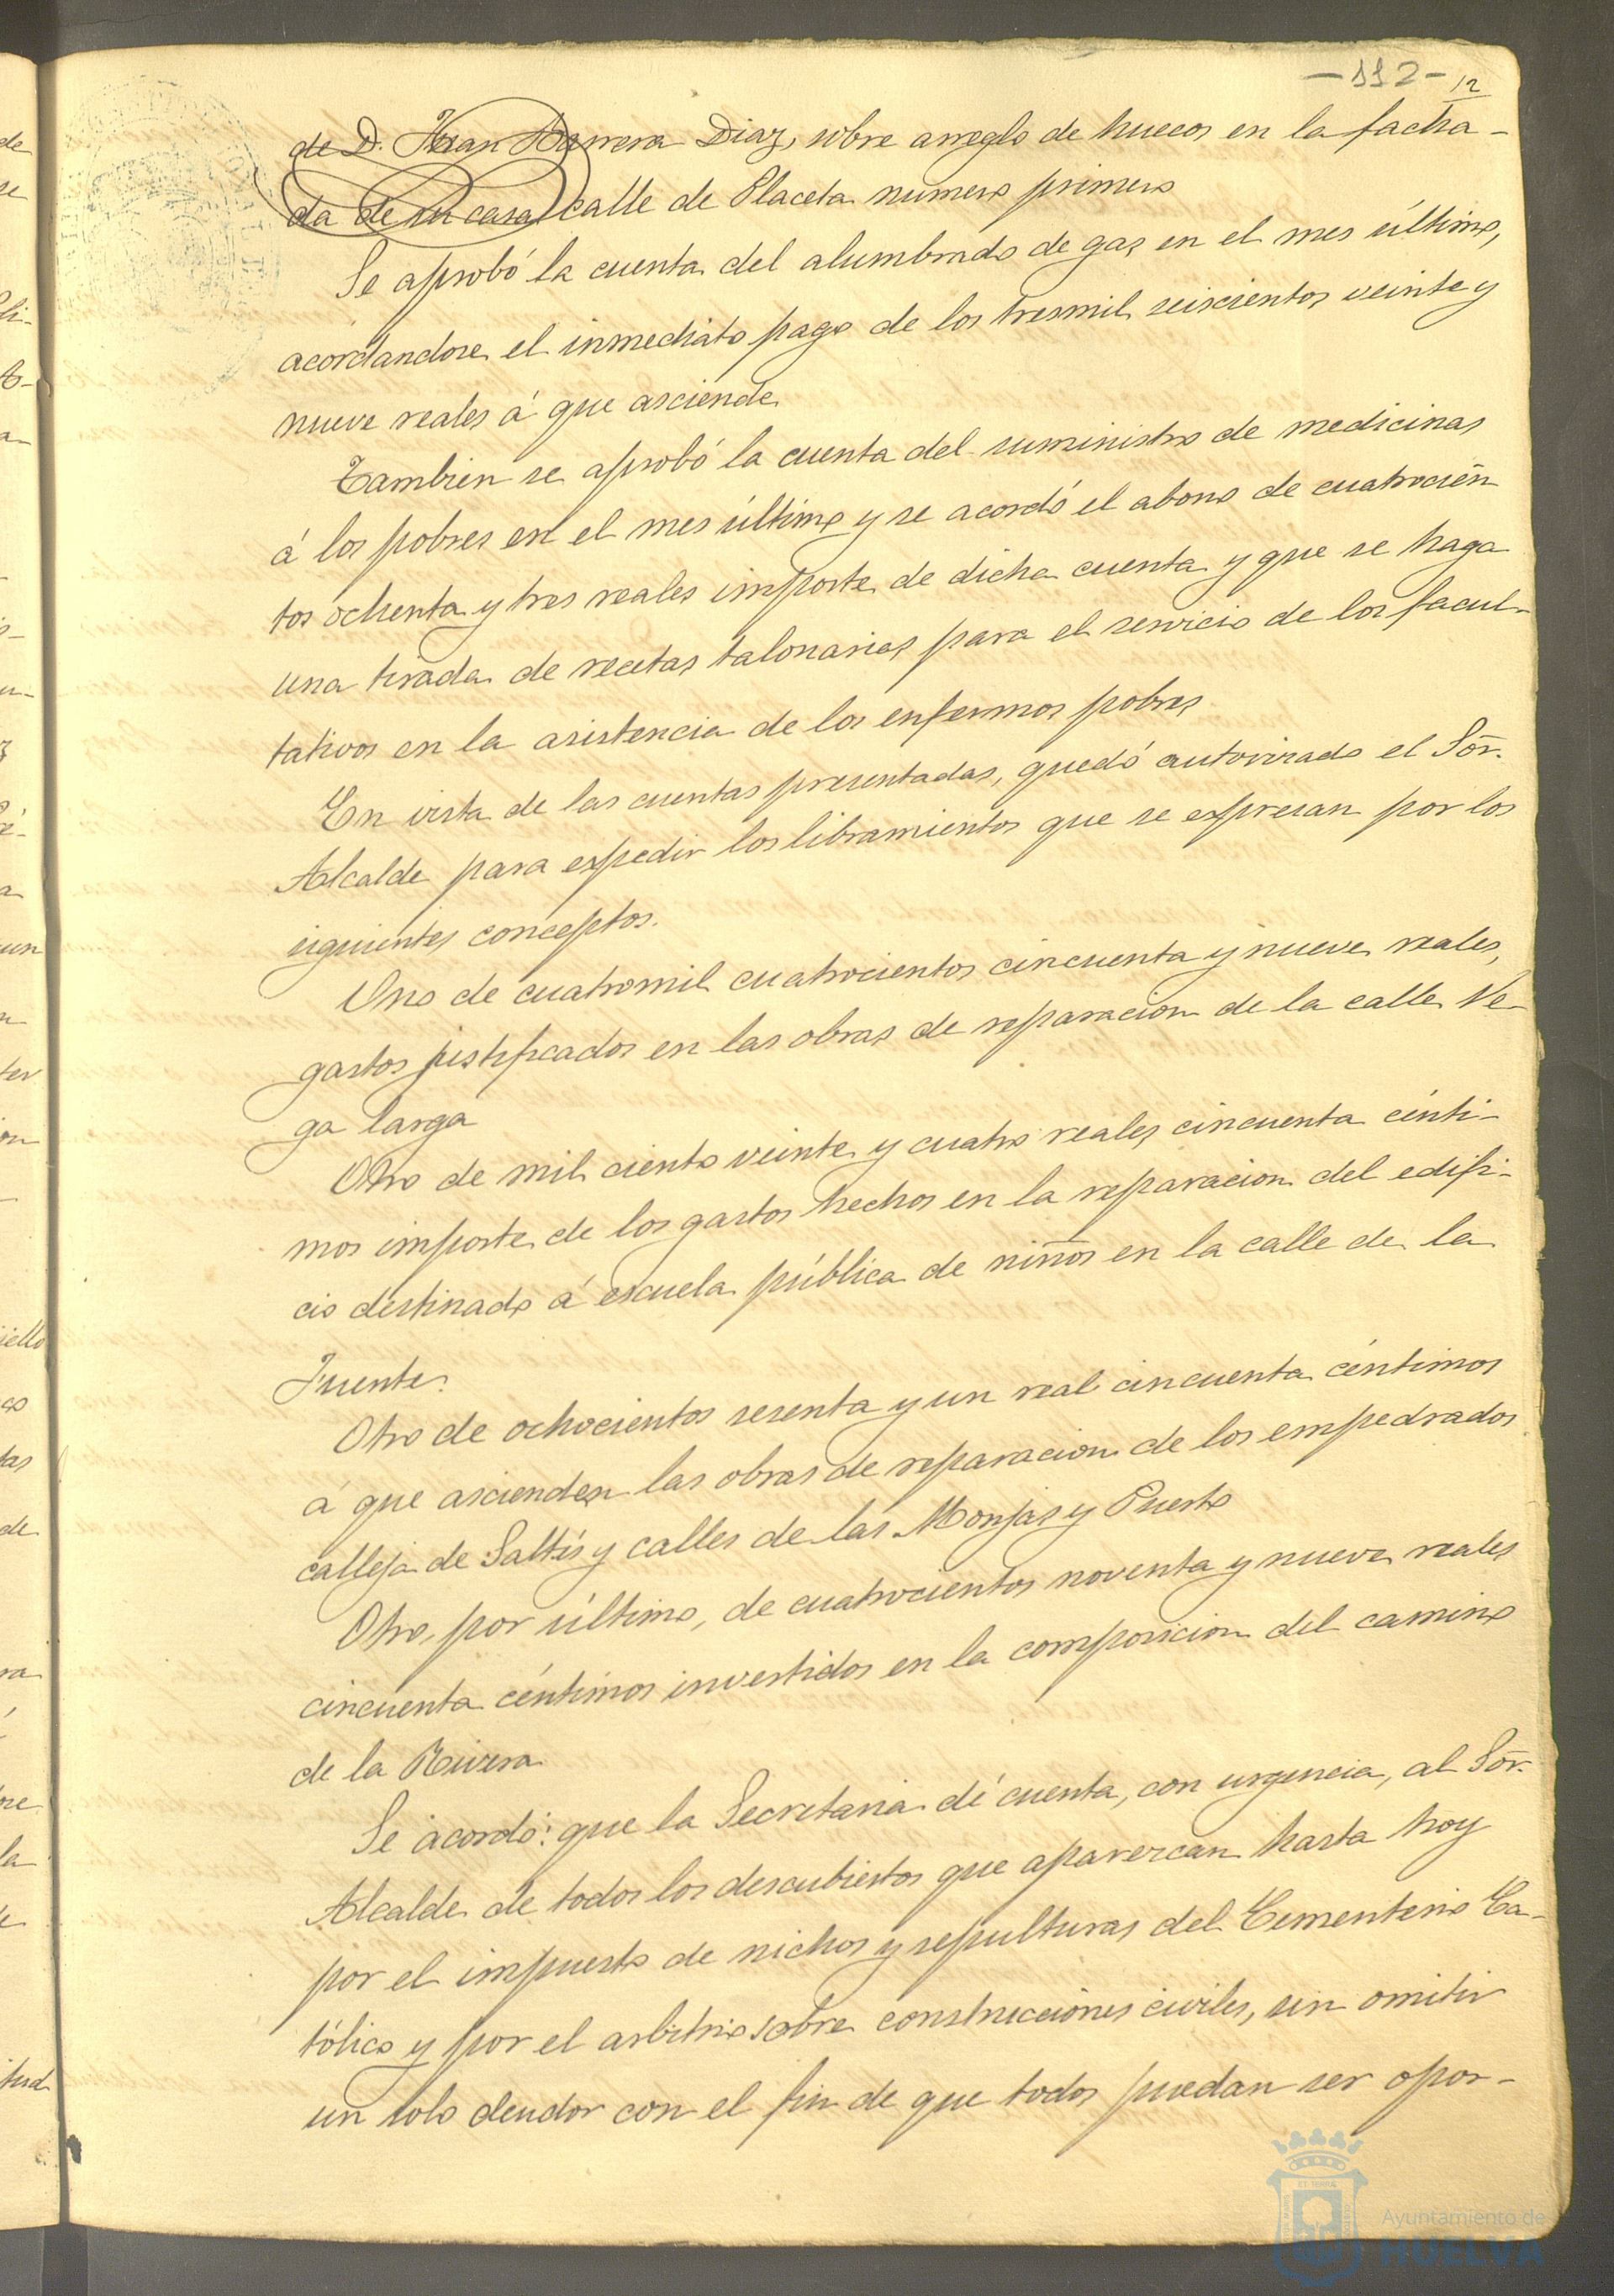 -112- 12
de D. Juan Barrera Diaz, sobre arreglo de huecos en la facha-
da de su casa calle de Placeta numero primero
Se aprobó la cuenta del alumbrado de gas en el mes último,
acordandose el inmediato pago de los tresmil seiscientos veinte y
nueve reales á que asciende
Tambien se aprobó la cuenta del suministro de medicinas
á los pobres en el mes último y se acordó el abono de cuatrocien
tos ochenta y tres reales importe de dicha cuenta y que se haga
una tirada de recetas talonarias para el servicio de los facul-
tativos en la asistencia de los enfermos pobres
En vista de las cuentas presentadas, quedó autorizado el Sõr.
Alcalde para expedir los libramientos que se expresan por los
siguientes conceptos.
Uno de cuatromil cuatrocientos cincuenta y nueve reales,
gastos justificados en las obras de reparacion de la calle Ve-
ga larga
Otro de mil ciento veinte y cuatro reales cincuenta cénti-
mos importe de los gastos hechos en la reparacion del edifi-
cio destinado á escuela pública de niños en la calle de la
Fuente.
Otro de ochocientos sesenta y un real cincuenta céntimos
á que ascienden las obras de reparacion de los empedrados
calleja de Saltés y calles de las Monjas y Puerto
Otro, por último, de cuatrocientos noventa y nueve reales
cincuenta céntimos invertidos en la composicion del camino
de la Rivera
Se acordó: que la Secretaria dé cuenta, con urgencia, al Sõr.
Alcalde de todos los descubiertos que aparezcan hasta hoy
por el impuesto de nichos y sepulturas del Cementerio Ca-
tólico y por el arbitrio sobre construcciones civiles, sin omitir
un solo deudor con el fin de que todos puedan ser opor-
Ayuntamiento de
HUELVA